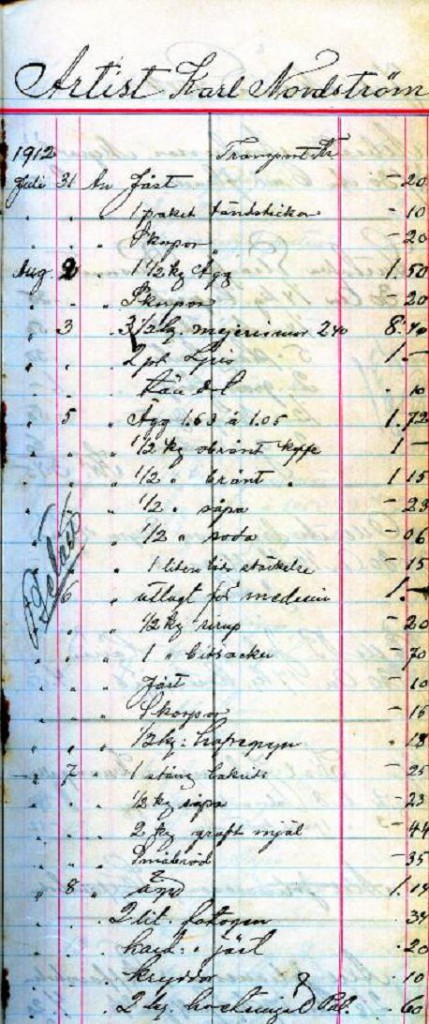 Artist Karl Nordström
1912 Transport Kr
Juli 31 An Jäst - 20
" " " 1 paket tändstickor - 10
" " " Skorpor - 20
Aug 2 " 1 1/2 kg Ägg 1.50
" " Skorpor - 20
" 3 " 3 1/2 kg mejerismör 240 8:40
" " 2 1.-
" " 10
" 5 " Ägg 1.63 à 1.05 1.72
" " 1/2 kg obränt kaffe 1 -
" " 1/2 " bränt " 1 15
" " 1/2 " såpa - 23
" " 1/2 " soda - 06
" " 1 liten stärkelse - 15
Betalt
" 6 " utlagt för medicin 1.-
" " 1/2 kg sirup - 20
" " 1 " bitsocker - 70
" " Jäst - 10
" " Skorpor - 15
" " 1/2 kg: havregryn - 18
" 7 " 1 stång - 25
" " 1/2 kg såpa - 23
" " 2 kg graft mjöl - 44
" " Småbröd - 35
" 8 " 1.14
" " 2 lit. 34
" " jäst 20
" " kryddor 10
" " 2 kg 60